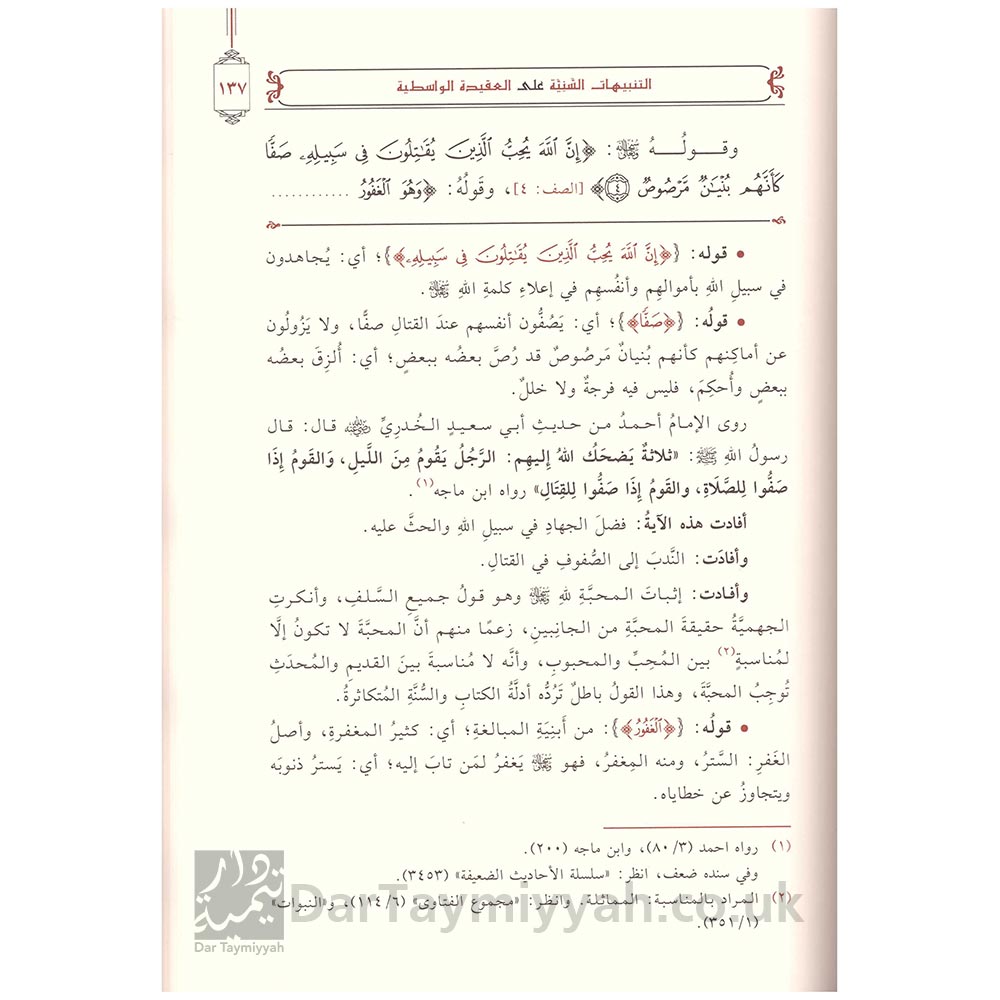 ١٣٧
التنبيهات السَّنيَّة على العقيدة الواسطية
وقولُهُ ﷻ: ﴿إِنَّ ٱللَّهَ يُحِبُّ ٱلَّذِينَ يُقَٰتِلُونَ فِى سَبِيلِهِۦ صَفًّا
كَأَنَّهُم بُنْيَٰنٌ مَّرْصُوصٌ ٤﴾ [الصف: ٤]، وقَولُهُ: ﴿وَهُوَ ٱلْغَفُورُ ............
• قوله: {﴿إِنَّ ٱللَّهَ يُحِبُّ ٱلَّذِينَ يُقَٰتِلُونَ فِى سَبِيلِهِۦ﴾}؛ أي: يُجاهدون
في سبيلِ اللهِ بأموالهِم وأنفُسِهِم في إعلاءِ كلمةِ اللهِ ﷻ.
• قولُه: {﴿صَفًّا﴾}؛ أي: يَصُفُّون أنفسهم عندَ القتالِ صفًّا، ولا يَزُولُون
عن أماكِنهم كأنهم بُنيانٌ مَرصُوصٌ قد رُصَّ بعضُه ببعضٍ؛ أي: أُلزِقَ بعضُه
ببعضٍ وأُحكِمَ، فليس فيه فرجةٌ ولا خللٌ.
روى الإمامُ أحمدُ من حديثِ أبي سعيدٍ الخُدريِّ رضي الله عنه قال: قال
رسولُ اللهِ ﷺ: «ثلاثةٌ يَضحَكُ اللهُ إليهِم: الرَّجُلُ يَقُومُ مِنَ اللَّيلِ، وَالقَومُ إِذَا
صَفُّوا لِلصَّلَاةِ، والقَومُ إِذَا صَفُّوا لِلقِتَالِ» رواه ابن ماجه(١).
أفادت هذه الآيةُ: فضلَ الجهادِ في سبيلِ اللهِ والحثَّ عليه.
وأفادَت: النَّدبَ إلى الصُّفوفِ في القتالِ.
وأفادت: إثباتَ المحبَّةِ للهِ ﷻ وهو قولُ جميعِ السَّلفِ، وأنكرتِ
الجهميَّةُ حقيقةَ المحبَّةِ من الجانِبينِ، زعمًا منهم أنَّ المحبَّةَ لا تكونُ إلَّا
لمُناسبةٍ(٢) بين المُحِبِّ والمحبوبِ، وأنَّه لا مُناسبةَ بينَ القديمِ والمُحدَثِ
تُوجِبُ المحبَّةَ، وهذا القولُ باطلٌ تَرُدُّه أدلَّةُ الكتابِ والسُّنَّةِ المُتكاثرةُ.
• قولُه: {﴿ٱلْغَفُورُ﴾}: من أَبنِيَةِ المبالغةِ؛ أي: كثيرُ المغفرةِ، وأصلُ
الغَفرِ: السَّترُ، ومنه المِغفرُ، فهو ﷻ يَغفرُ لمَن تابَ إليه؛ أي: يَسترُ ذنوبَه
ويتجاوزُ عن خطاياه.
(١) رواه احمد (٨٠/٣)، وابن ماجه (٢٠٠).
وفي سنده ضعف، انظر: «سلسلة الأحاديث الضعيفة» (٣٤٥٣).
(٢) المراد بالمناسبة: المماثلة. وانظر: «مجموع الفتاوى» (١١٤/٦)، و«النبوات»
(٣٥١/١).
دار تيمية
Dar Taymiyyah
DarTaymiyyah.co.uk